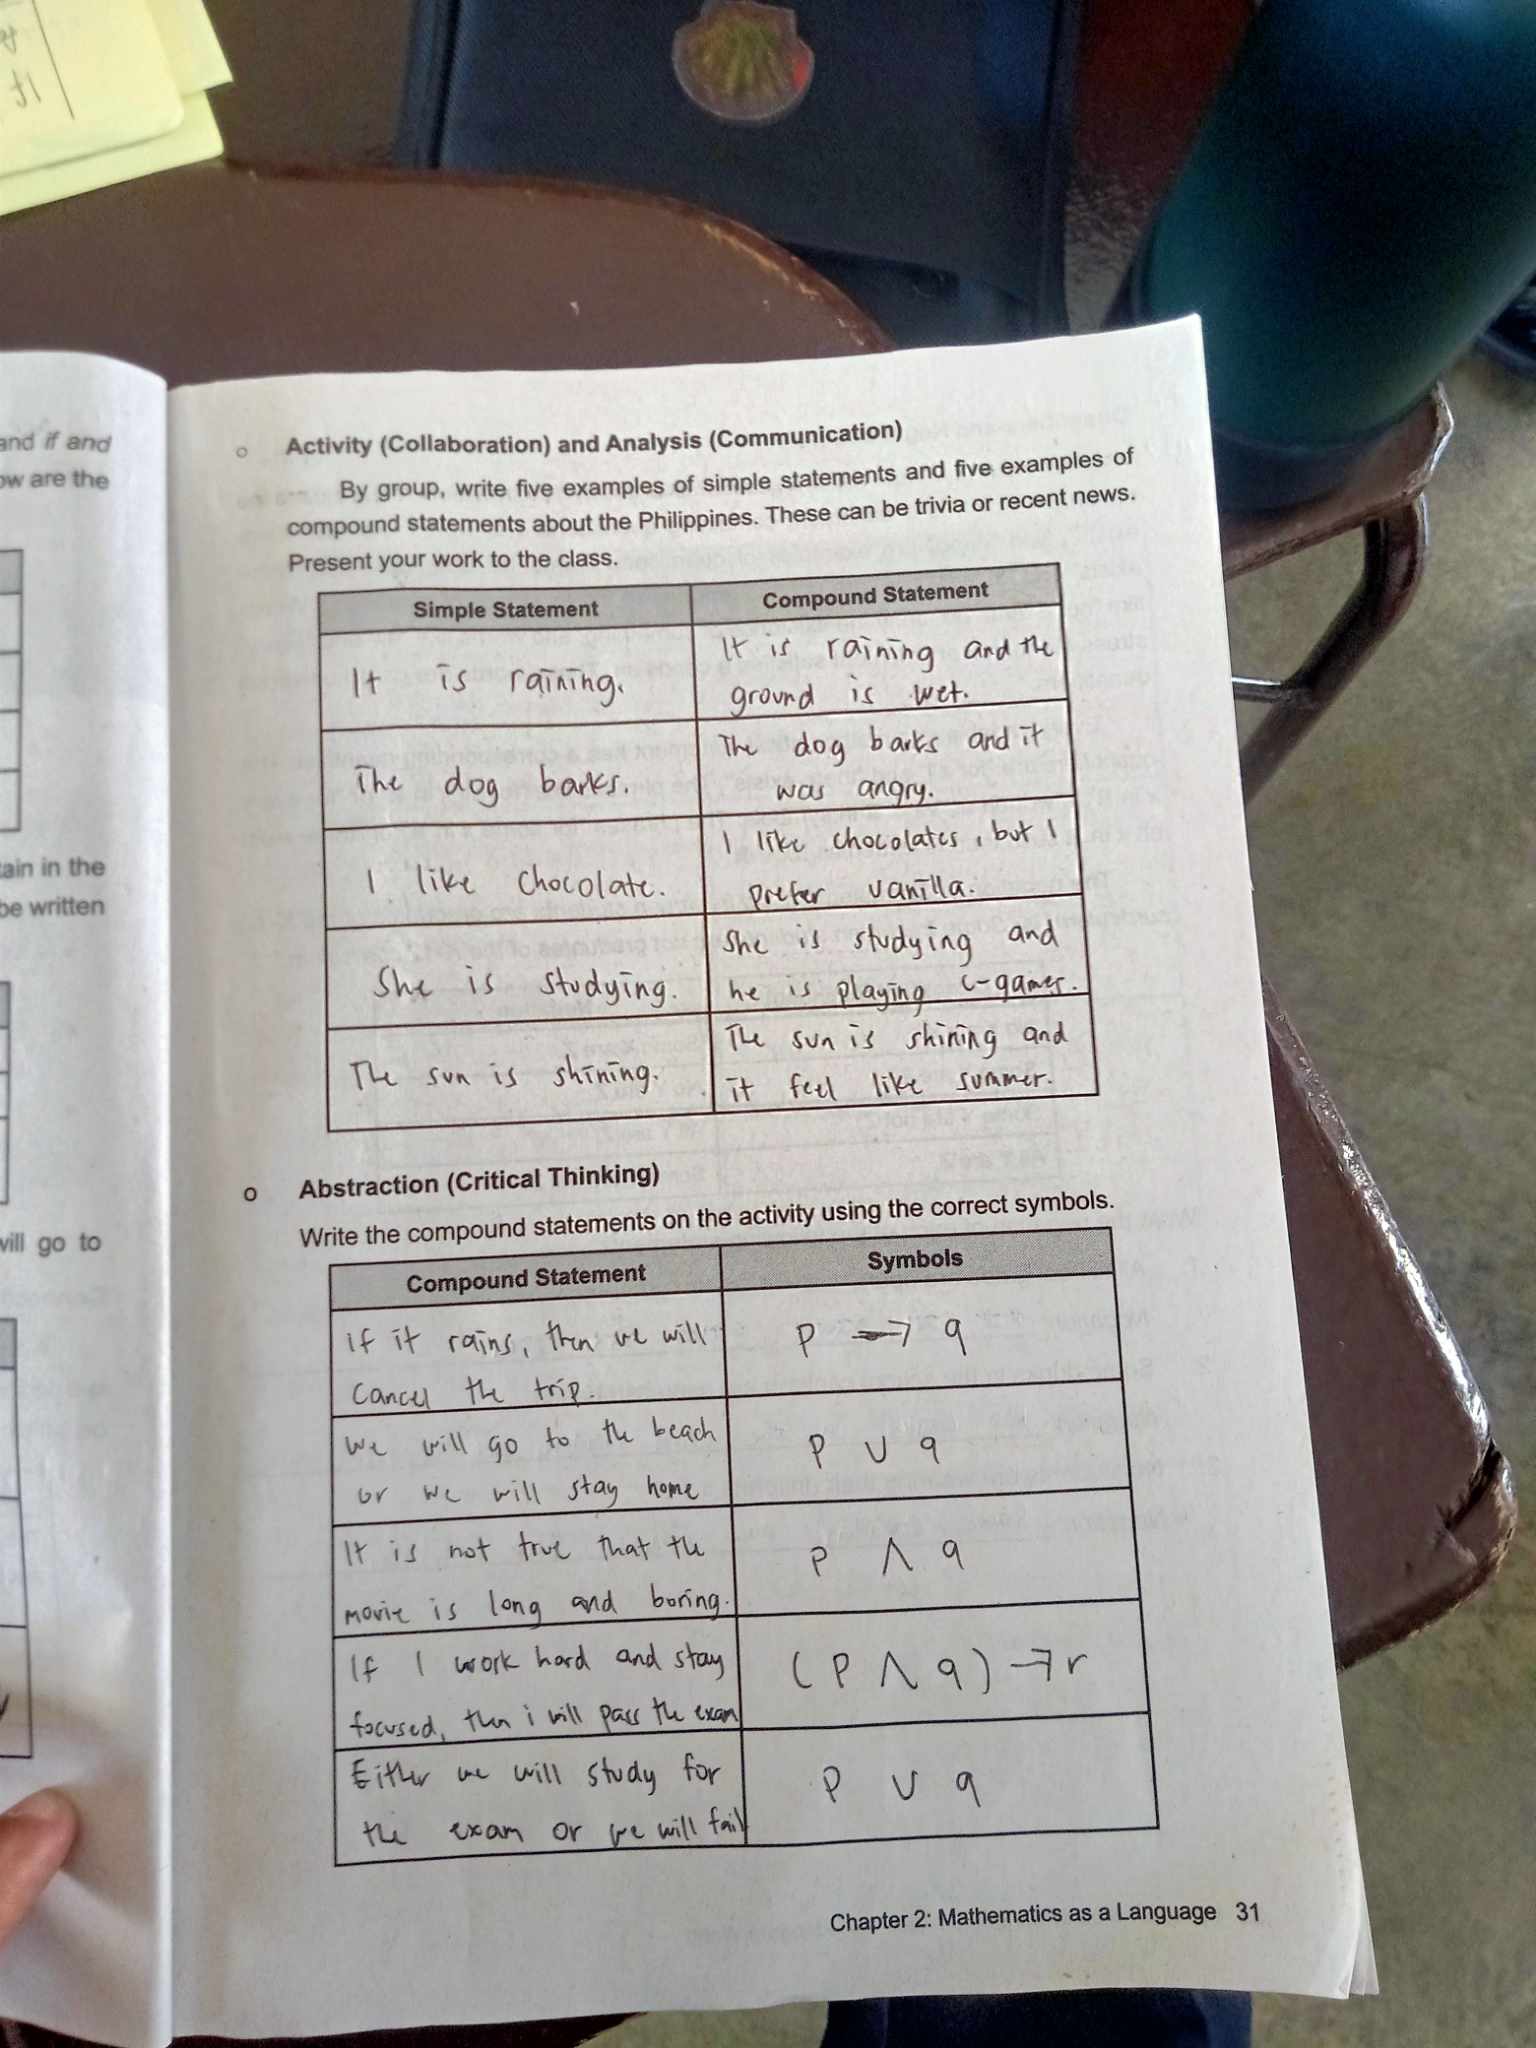 and if and
ow are the
ain in the
be written
will go to
Activity (Collaboration) and Analysis (Communication)
By group, write five examples of simple statements and five examples of
compound statements about the Philippines. These can be trivia or recent news.
Present your work to the class.
Simple Statement
Compound Statement
It is raining.
It is raining and the
ground is wet.
The dog barks.
The dog barks and it
was angry.
I like chocolate.
I like chocolates, but I
prefer vanilla.
She is studying.
She is studying and
he is playing c-games.
The sun is shining.
The sun is shining and
it feel like summer.
Abstraction (Critical Thinking)
Write the compound statements on the activity using the correct symbols.
Compound Statement
Symbols
if it rains, then we will
cancel the trip.
p → q
We will go to the beach
or we will stay home
p ∪ q
It is not true that the
movie is long and boring.
p ∧ q
If I work hard and stay
focused, then i will pass the exam
(p ∧ q) → r
Either we will study for
the exam or we will fail
p ∪ q
Chapter 2: Mathematics as a Language 31